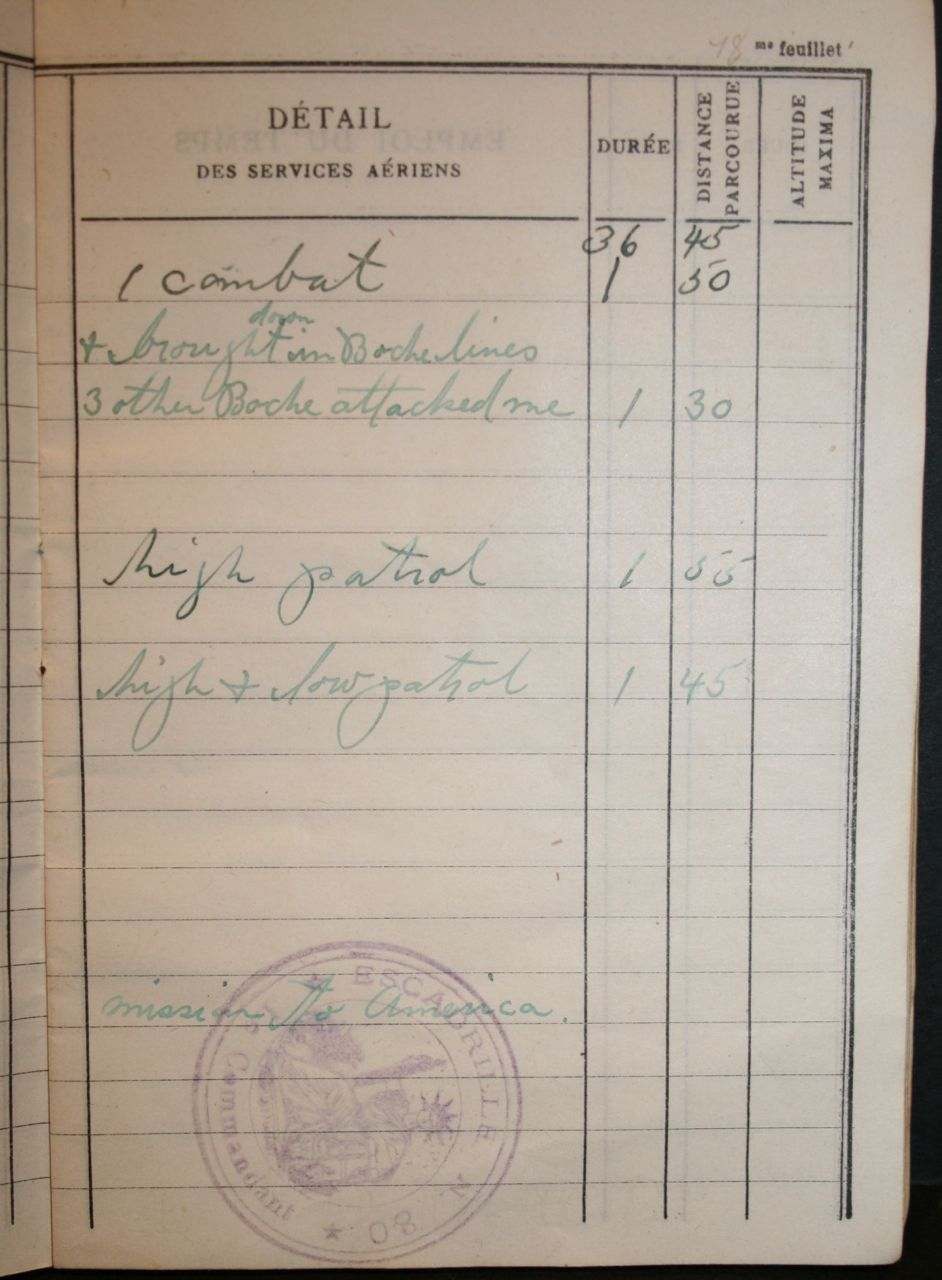 18 me feuillet
DÉTAIL
DES SERVICES AÉRIENS
DURÉE
DISTANCE PARCOURUE
ALTITUDE MAXIMA
36 45
1 combat 1 50
down
+ brought in Boche lines
3 other Boche attacked me 1 30
high patrol 1 55
high + low patrol 1 45
mission to America.
ESCADRILLE N
80
Commandant